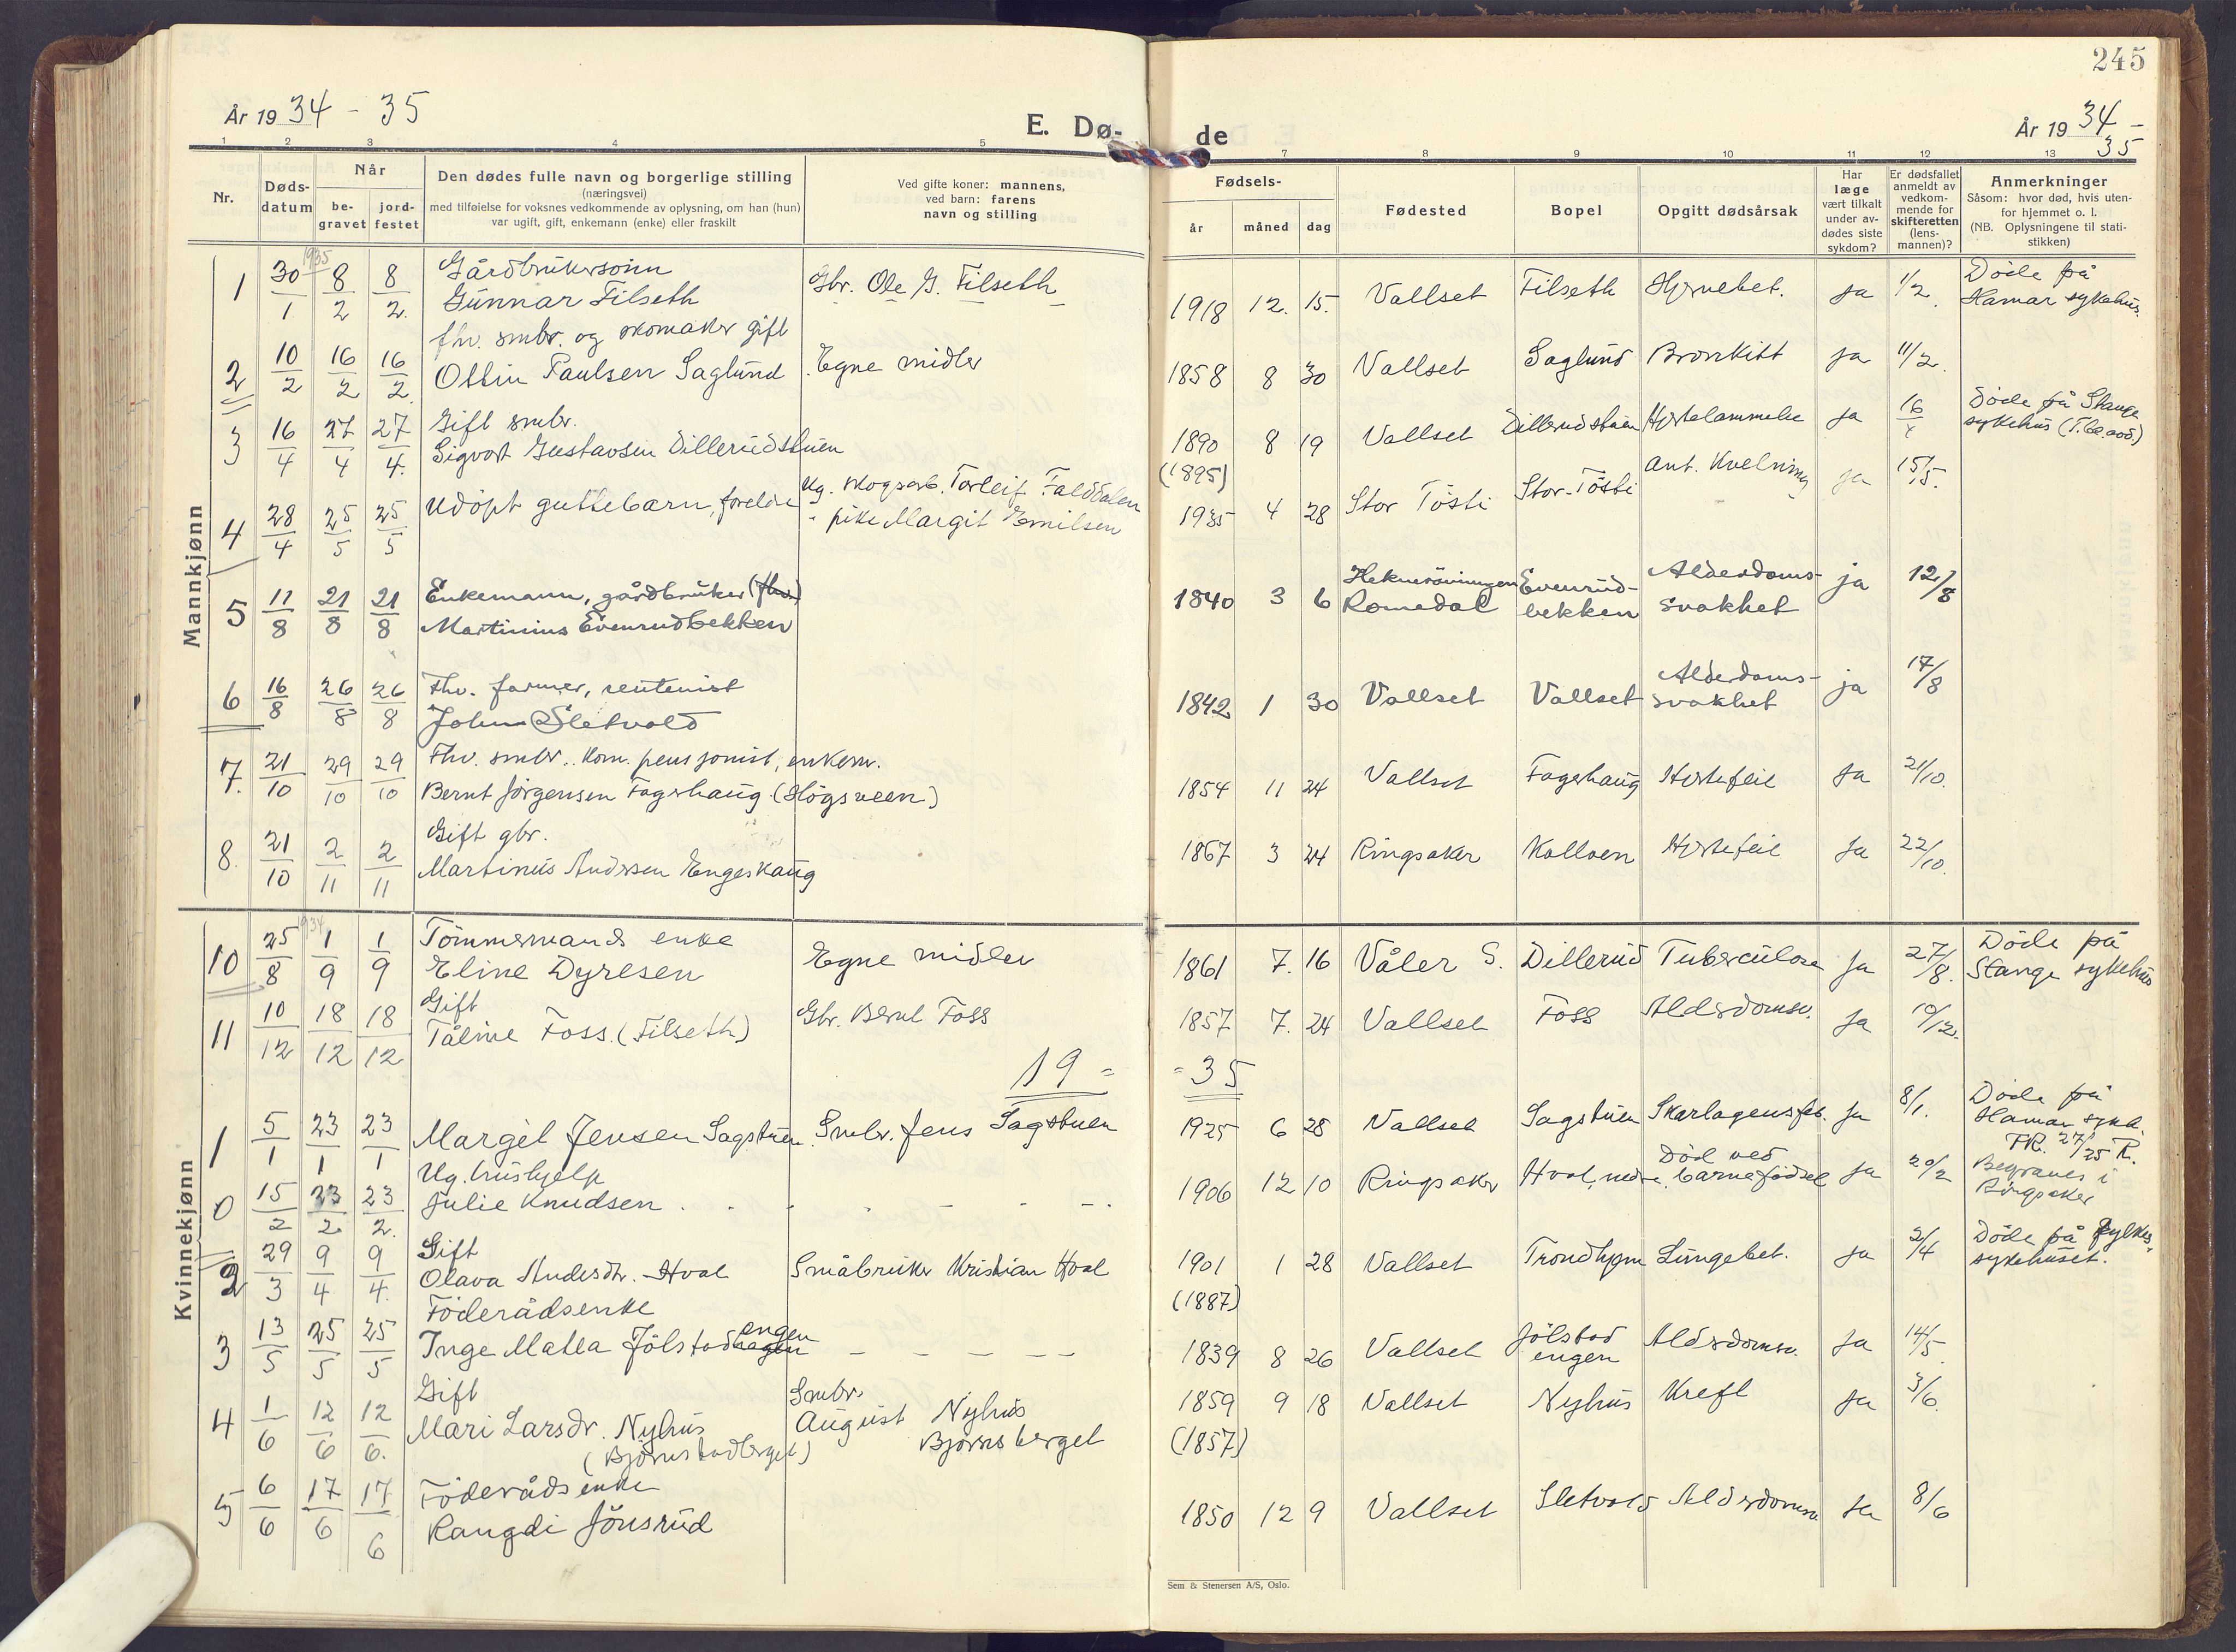 245
År 1934 - 35
E. Dø-
de
År 1934 -
35
1 2 3 4 5 7 8 9 10 11 12 13
Nr.
Døds-
datum
Når
be-
gravet
jord-
festet
Den dødes fulle navn og borgerlige stilling
(næringsvei)
med tilføielse for voksnes vedkommende av oplysning, om han (hun)
var ugift, gift, enkemann (enke) eller fraskilt
Ved gifte koner: mannens,
ved barn: farens
navn og stilling
Fødsels-
år måned dag
Fødested
Bopel
Opgitt dødsårsak
Har
læge
vært tilkalt
under av-
dødes siste
sykdom?
Er dødsfallet
anmeldt av
vedkom-
mende for
skifteretten
(lens-
mannen)?
Anmerkninger
Såsom: hvor død, hvis uten-
for hjemmet o. l.
(NB. Oplysningene til stati-
stikken)
Mannkjønn
1935
1 30/1 8/2 8/2. Gårdbrukersønn
Gunnar Filseth Gbr. Ole G. Filseth 1918 12. 15. Vallset Filseth Hjernebet. Ja 1/2. Døde på
Hamar sykehus.
fhv. smbr. og skomaker gift
2 10/2 16/2 16/2. Ollin Paulsen Saglund Egne midler 1858 8 30 Vallset Saglund Bronkitt Ja 11/2.
3 16/4 27/4 27/4. Gift smbr.
Sigvart Gustavsen Dillerudstuen 1890 8 19 Vallset Dillerudstuen Hjertelammelse Ja 16/4 Døde på Stange
sykehus
(1895)
4 28/4 25/5 25/5 Udøpt guttebarn, foreldre Ug. skogsarb. Torleif Falddalen
" pike Margit Emilsen 1935 4 28 Stor Tösti Stor-Tösti Ant. Kvelning ja 15/5.
5 11/8 21/8 21/8 Enkemann, gårdbruker (fhv.)
Martinius Evenrudbekken 1840 3 6 Romedal Evenrud-
bekken Alderdoms-
svakhet ja 12/8
6 16/8 26/8 26/8 Fhv. farmer, rentenist
John Sletvold 1842 1 30 Vallset Vallset Alderdoms-
svakhet ja 17/8
7. 21/10 29/10 29/10 Fhv. smbr. kom. pensjonist, enkem.
Bernt Jörgensen Fagerhaug (Högsveen) 1854 11 24 Vallset Fagerhaug Hjertefeil Ja 21/10.
8. 21/10 2/11 2/11 Gift gbr.
Martinus Andersen Engeskaug 1867 3 24 Ringsaker Kolloen Hjertefeil Ja 22/10.
Kvinnekjønn
1934
10 25/8 1/9 1/9 Tömmermands enke
Eline Dyresen Egne midler 1861 7. 16 Våler S. Dillerud Tuberculose Ja 27/8. Döde på
Stange sykehus
11 10/12 18/12 18/12 Gift
Tåline Foss. (Filseth) Gbr. Bernt Foss 1857 7. 24 Vallset Foss Alderdomsv. Ja 10/12.
19 - - 35
1 5/1 23/1 23/1 Margit Jensen Sagstuen Smbr. Jens Sagstuen 1925 6 28 Vallset Sagstuen Skarlagensfeb. Ja 8/1. Døde på
Hamar sykh.
0 15/2 23/2 23/2. Ug. hushjelp
Julie Knudsen 1906 12 10 Ringsaker Hval, nedre Död ved
barnefödsel Ja 20/2 Begraves i
Ringsaker
2 29/3 9/4 9/4. Gift
Olava Andersdtr. Hval Småbruker Kristian Hval 1901 1 28 Vallset Trondhjem Lungebet. Ja 2/4 Döde på Fylkes-
sykehuset.
(1887)
3 13/5 25/5 25/5 Föderådsenke
Inge Matea Jölstadengen 1839 8 26 Vallset Jölstad
engen Alderdomsv. Ja 14/5.
4 1/6 12/6 12/6. Gift
Mari Larsdr. Nyhus
(Björnstadberget) Smbr.
August Nyhus
Björnsberget 1859 9 18 Vallset Nyhus Kreft Ja 3/6.
(1857)
5 6/6 17/6 17/6 Föderådsenke
Rangdi Jönsrud 1850 12 9 Vallset Sletvold Alderdomsv. Ja 8/6
Sem & Stenersen A/S, Oslo.